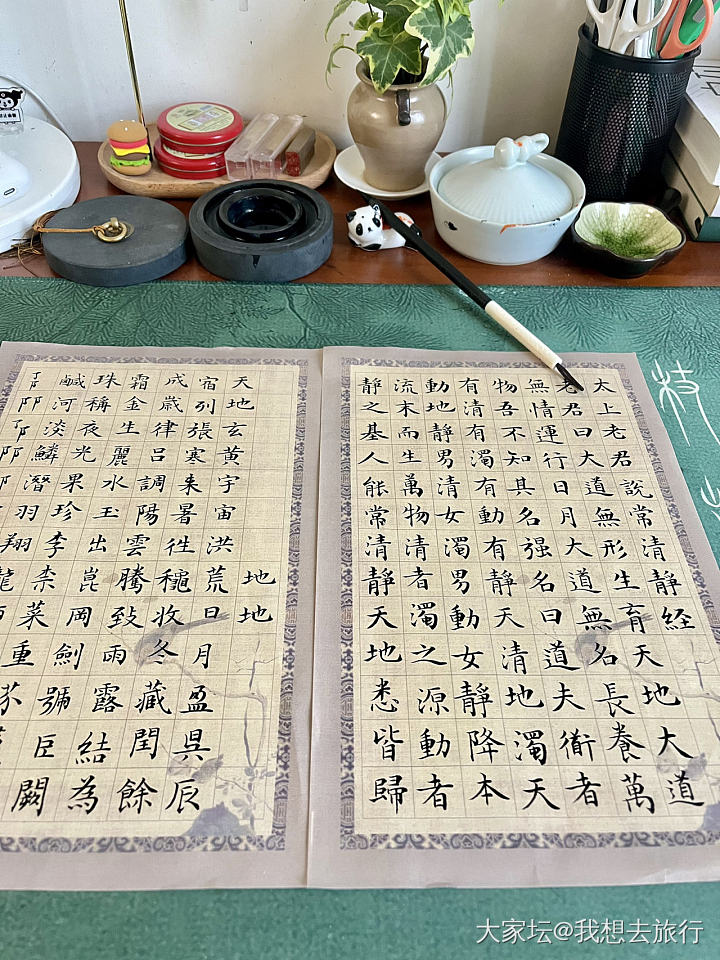 太上老君說常清靜経
老君曰大道無形生育天地大道
無情運行日月大道無名長養萬
物吾不知其名强名曰道夫衜者
有清有濁有動有靜天清地濁天
動地靜男清女濁男動女靜降本
流末而生萬物清者濁之源動者
靜之基人能常清靜天地悉皆歸
地地
天地玄黃宇宙洪荒日月盈昃辰
宿列張寒来暑徃穐收冬藏閏餘
成歲律呂調陽雲騰致雨露結為
霜金生麗水玉出崑岡劍號臣闕
珠稱夜光果珍李柰菜重芥
鹹河淡鱗潛羽翔龍
大家坛@我想去旅行